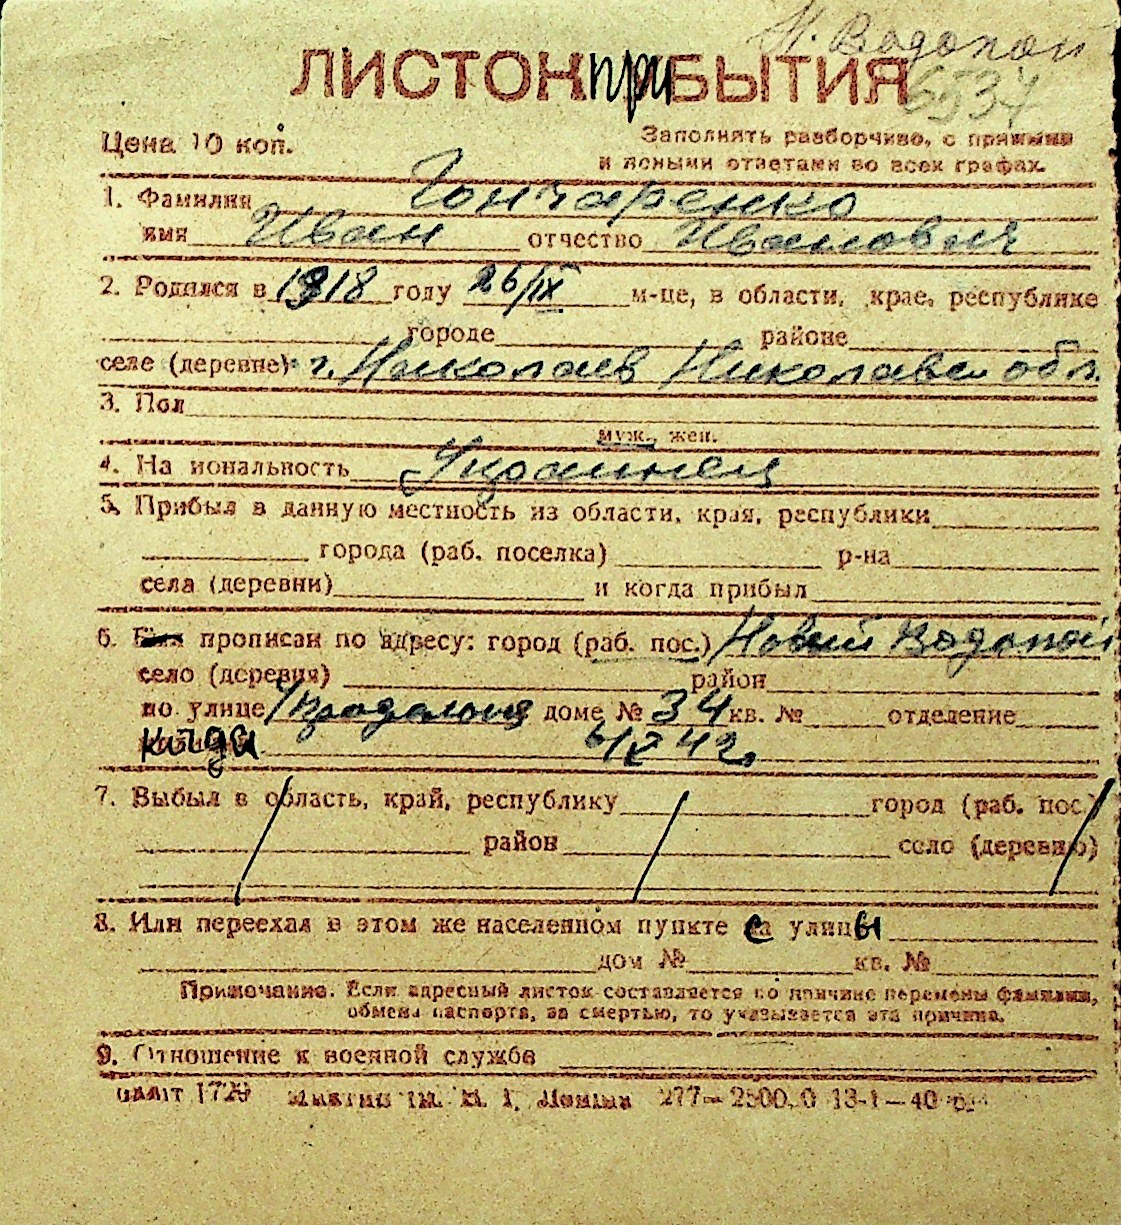 Н. Водопой
6537
ЛИСТОК при БЫТИЯ
Цена 10 коп.
Заполнять разборчиво, с прямыми
и ясными ответами во всех графах.
1. Фамилия Гончаренко
имя Иван отчество Иванович
2. Родился в 1918 году 26/IX м-це, в области, крае, республике
городе районе
селе (деревне) г. Николаев Николаев обл.
3. Пол
муж., жен.
4. На иональность Украинец
5. Прибыл в данную местность из области, края, республики
города (раб. поселка) р-на
села (деревни) и когда прибыл
6. Был прописан по адресу: город (раб. пос.) Новый Водопой
село (деревня) район
по улице доме № 34 кв. № отделение
когда 42г.
7. Выбыл в область, край, республику город (раб. пос.)
район село (деревню)
8. Или переехал в этом же населенном пункте с улицы
дом № кв. №
Примечание. Если адресный листок составляется по причине перемены фамилии,
обмена паспорта, за смертью, то указывается эта причина.
9. Отношение к военной службе
1729 277—2500.0 13-1—40